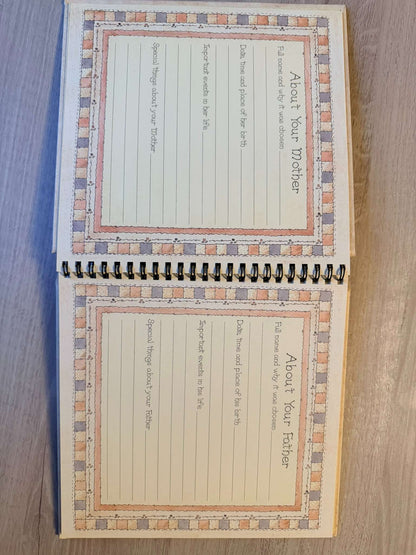 About Your Mother
Full name and why it was chosen
Date, time and place of her birth
Important events in her life
Special things about your Mother
About Your Father
Full name and why it was chosen
Date, time and place of his birth
Important events in his life
Special things about your Father